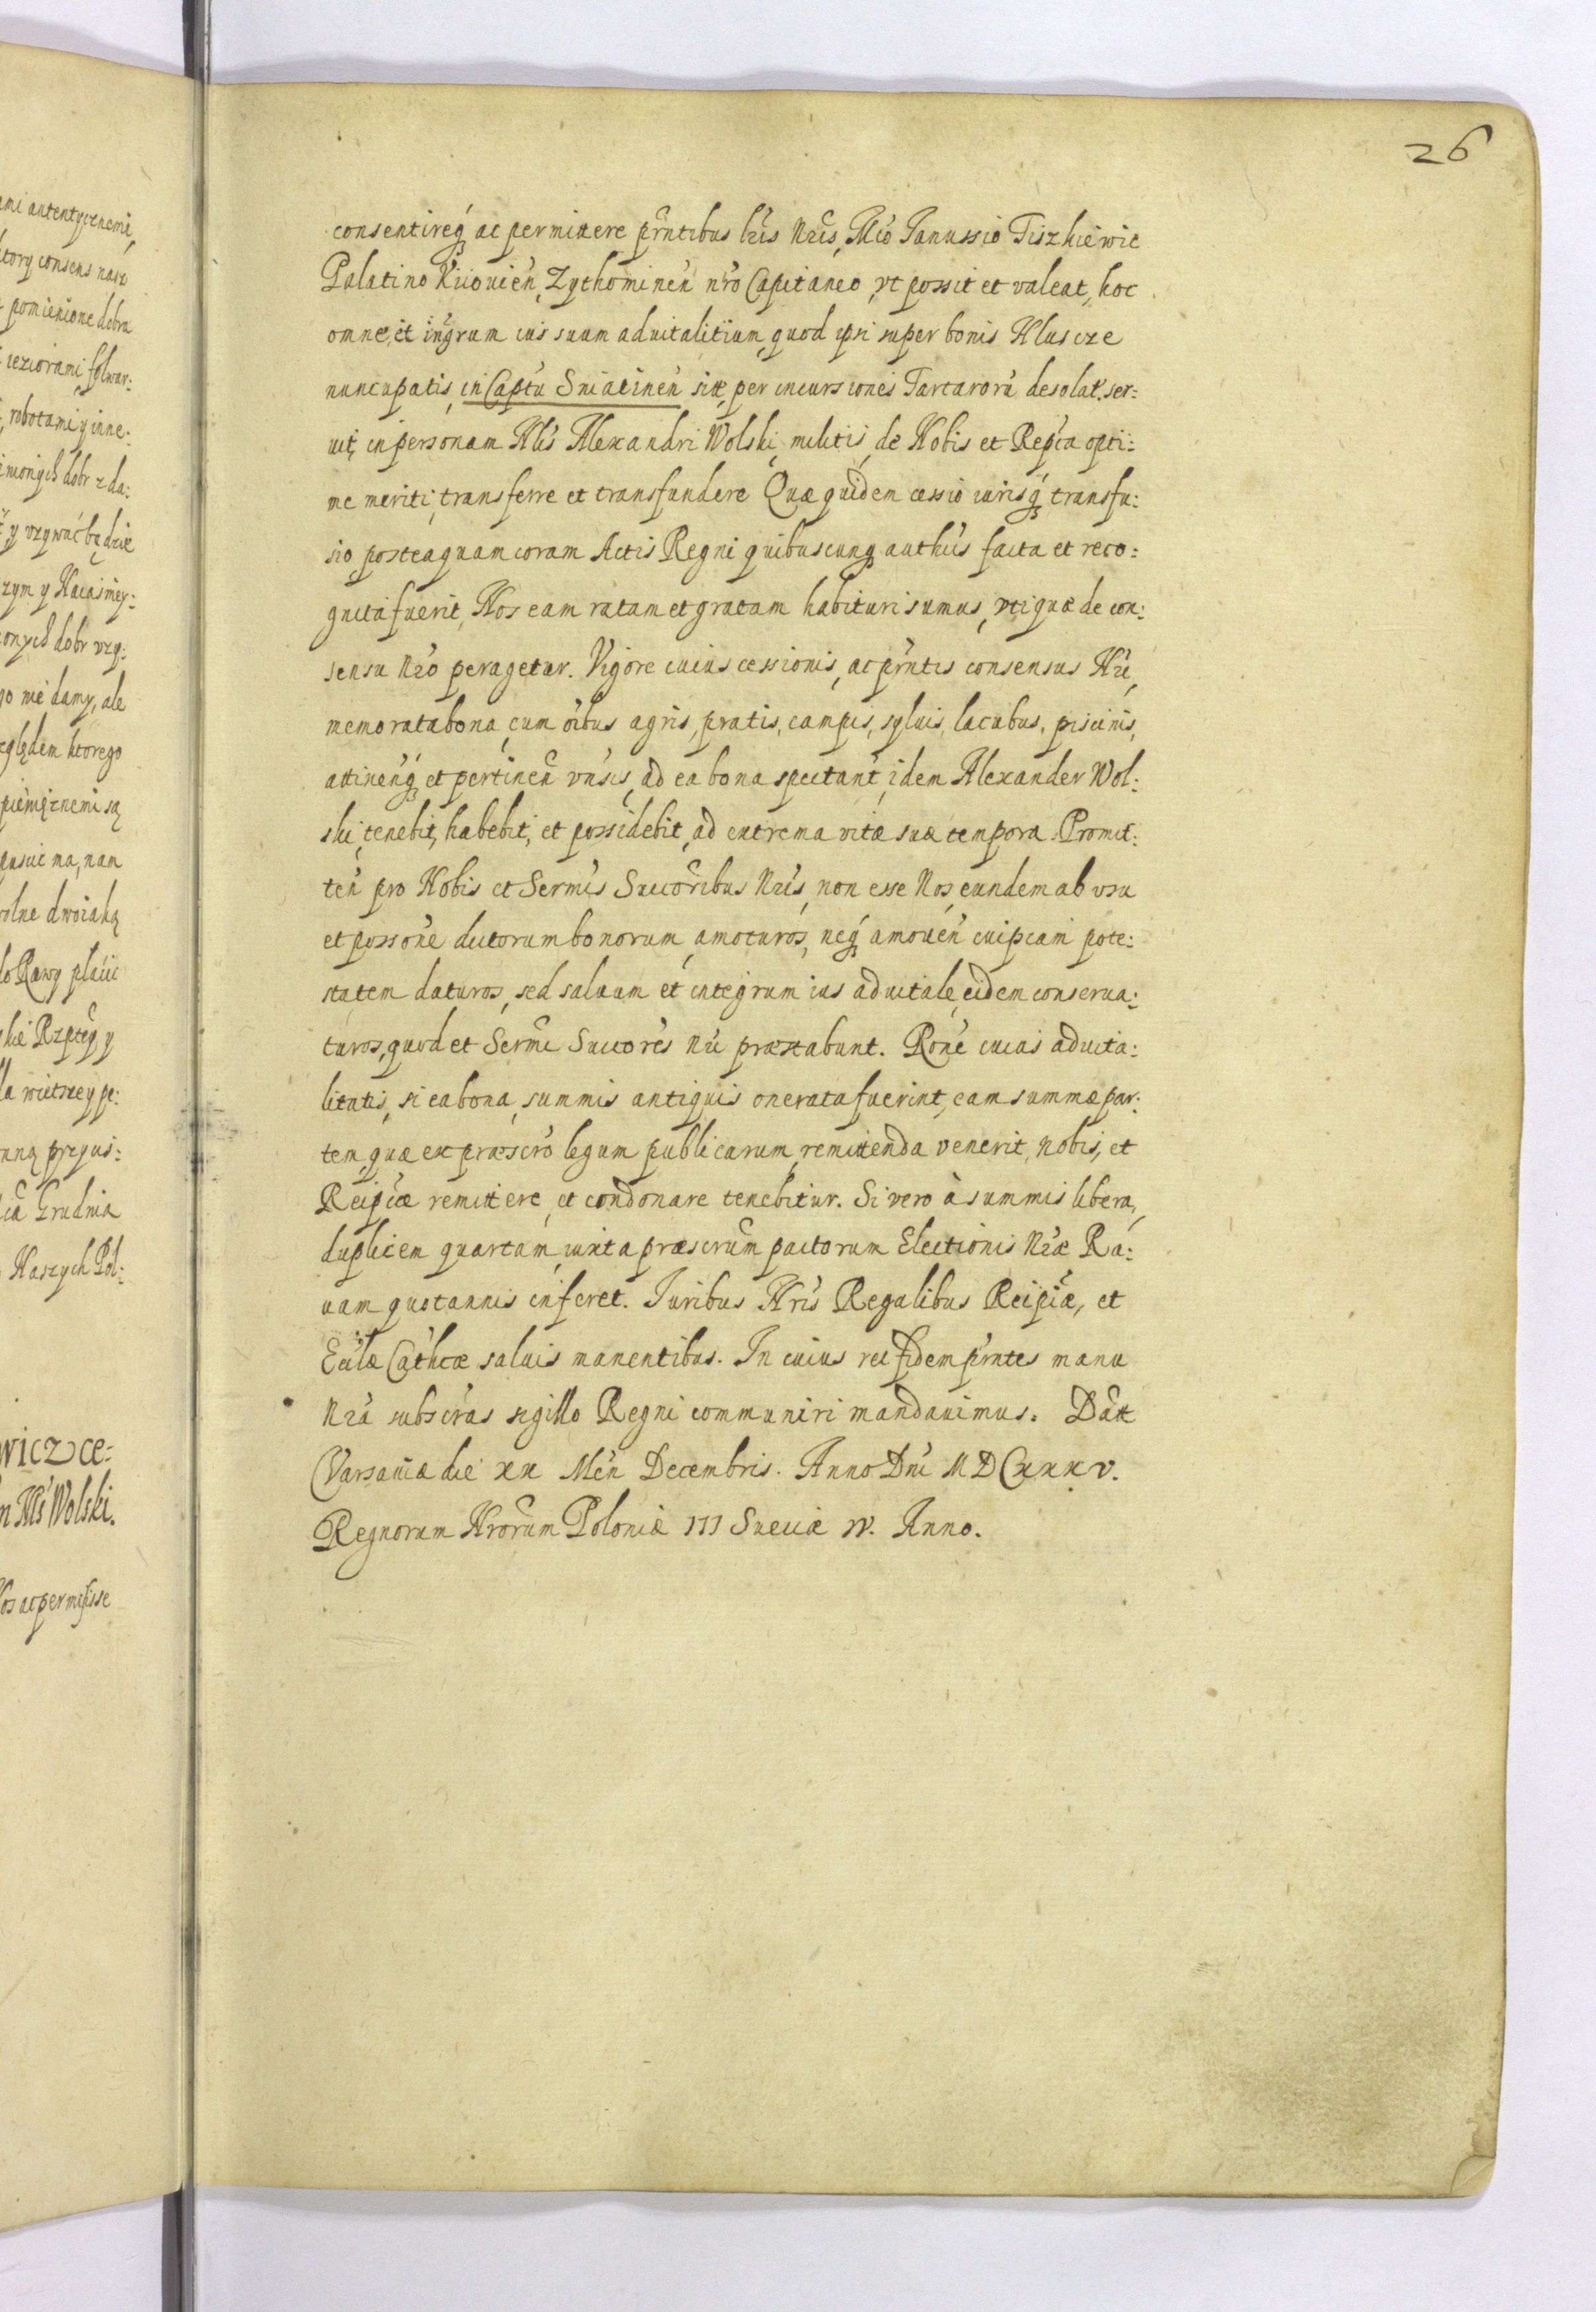 ami autentycznemi,
ktory consens nasz
pomienione dobra
ieziorami, folwar:
robotami y inne:
imionych dobr z da:
y vzywać będzie
zym y Naiaśniey:
onych dobr vzy:
go nie damy, ale
względem ktorego
pieniężnemi są
nam
wolne dwoiaką
do Rawy płacić
Rzptey y
la wietszey pe:
przycis:
Grudnia
Naszych Pol:
wicz ce:
Wolski.
ac permisisse
26
consentireq́ ac permittere p̃rntibus lr̃is Nr̃is, Mĩo Ianussio Tiszkiewic
Palatino Kiiouień, Zythomineń nrõ Capitaneo, vt possit et valeat, hoc
omne, et inğrum ius suum aduitalitium, quod ipsi super bonis Hluscze
nuncupatis, in Captũ Sniatineń sitt, per incursiones Tartarorũ desolat. ser:
uit, in personam Nlis Alexandri Wolski, militis, de Nobis et Repca opti:
me meriti, transferre et transfundere Quæ quidem cessio iurisq́ transfu:
sio, posteaquam coram Actis Regni quibuscunq authĩs facta et reco:
gnita fuerit, Nos eam ratam et gratam habituri sumus, vti quæ de con:
sensu Nrõ peragetur. Vigore cuius cessionis, ac prñtis consensus Nrĩ,
memorata bona, cum oĩbus agris, pratis, campis, syluis, lacubus, piscinis,
attineńq́ et pertineń vnsis, ad ea bona spectant, idem Alexander Wol:
ski, tenebit, habebit, et possidebit, ad extrema vitæ suæ tempora. Promit:
teń pro Nobis et Sermĩs Succoribus Nrĩs, non esse Nos, eundem ab vsu
et possone dictorum bonorum, amoturos, neq́ amoueń cuipiam pote:
statem daturos, sed saluum et integrum ius aduitale, eidem conserua:
turos, quod et Sermĩ Succores Nrĩ præstabunt. Roñe cuius aduita:
litatis, si ea bona, summis antiquis onerata fuerint, eam summæ par:
tem, quæ ex præscrõ legum publicarum, remittenda venerit, nobis, et
Reipcæ remittere, et condonare tenebitur. Si vero à summis libera,
duplicem quartam, iuxta præscrũm pactorum Electionis Nrãe Ra:
uam quotannis inferet. Iuribus Nrĩs Regalibus Reipcæ, et
Ecclæ Cathcæ saluis manentibus. In cuius rei fidem prñtes manu
Nrã subscrãs sigillo Regni communiri mandauimus. Datt
Varsauiæ die xx Meń Decembris. Anno Dnĩ MDCxxxv.
Regnorum Nrorum Poloniæ III Sueciæ IV. Anno.